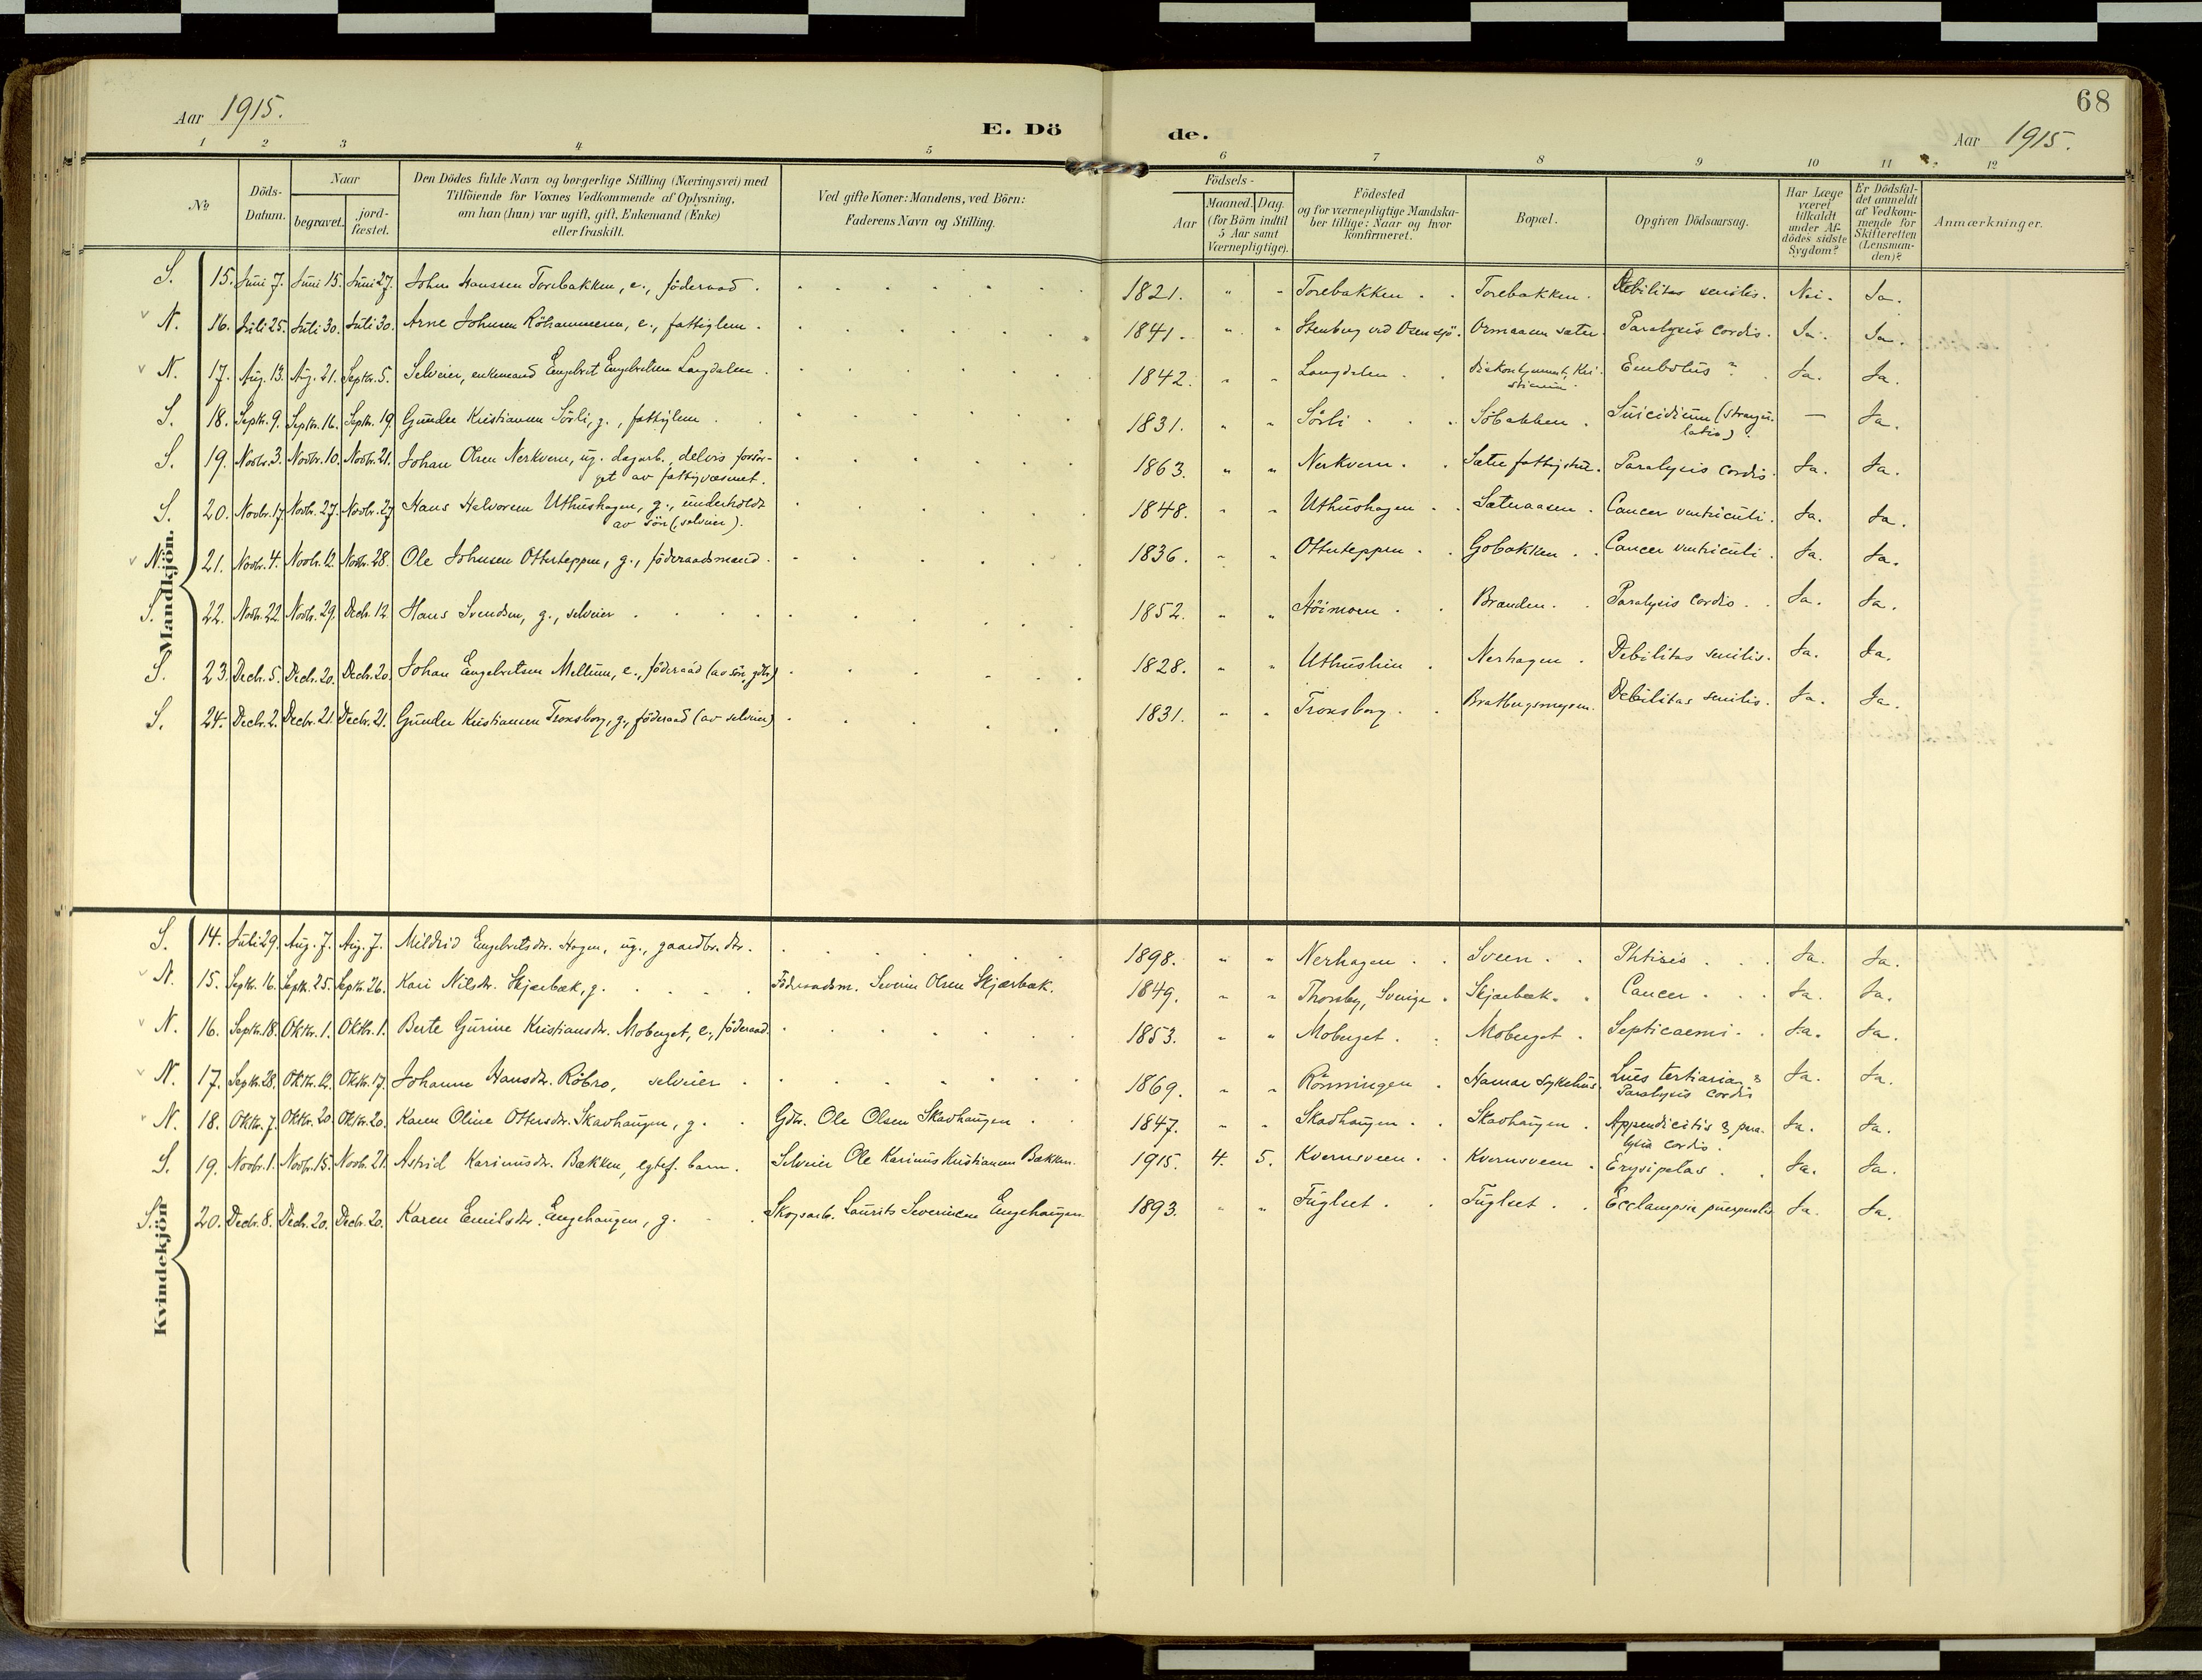 68
Aar 1915.
E. Dö de.
Aar 1915.
1 2 3 4 5 6 7 8 9 10 11 12
No
Döds-Datum.
Naar
begravet.
jord-fæstet.
Den Dödes fulde Navn og borgerlige Stilling (Næringsvei) med
Tilföiende for Voxnes Vedkommende af Oplysning,
om han (hun) var ugift, gift, Enkemand (Enke)
eller fraskilt.
Ved gifte Koner: Mandens, ved Börn:
Faderens Navn og Stilling.
Födsels-
Aar
Maaned. Dag.
(for Börn indtil
5 Aar samt
Værnepligtige).
Födested
og for værnepligtige Mandska-
ber tillige: Naar og hvor
konfirmeret.
Bopæl.
Opgiven Dödsaarsag.
Har Læge
været
tilkaldt
under Af-
dödes sidste
Sygdom?
Er Dödsfal-
det anmeldt
af Vedkom-
mende for
Skifteretten
(Lensman-
den)?
Anmærkninger.
Mandkjön.
S. 15. Juni 7. Juni 15. Juni 27. John Hanssen Torebakken, e., föderaad. 1821. " " Torebakken. Torebakken. Debilitas senilis. Nei. Ja.
N. 16. Juli 25. Juli 30. Juli 30. Arne Johnsen Röhammeren, e., fattiglem. 1841. " " Stenberg ved Osensjö. Ormaasen sæter. Paralysis cordis. Ja. Ja.
N. 17. Aug. 13. Aug. 21. Septbr. 5. Selveier, enkemand Engebret Engebretsen Langdalen. 1842. " " Langdalen. Diakonhjemmet, Kri-
stiania. Embolus ? Ja. Ja.
S. 18. Septbr. 9. Septbr. 16. Septbr. 19 Gunder Kristiansen Sörli, g., fattiglem. 1831. " " Sörli. Söbakken. Suicidium (strangu-
latio). — Ja.
S. 19. Novbr. 3. Novbr. 10. Novbr. 21. Johan Olsen Nerkvern, ug. dagarb., delvis forsör-
get av fattigvæsenet. 1863. " " Nerkvern. Sætre fattigstue. Paralysis cordis. Ja. Ja.
S. 20. Novbr. 17. Novbr. 27. Novbr. 27 Hans Halvorsen Uthushagen, g., underholdt
av sön (selveier). 1848. " " Uthushagen. Sæteraasen. Cancer ventriculi. Ja. Ja.
N. 21. Novbr. 4. Novbr. 12. Novbr. 28. Ole Johnsen Otterteppen, g., föderaadsmand. 1836. " " Otterteppen. Gobakken. Cancer ventriculi. Ja. Ja.
S. 22. Novbr. 22. Novbr. 29. Decbr. 12 Hans Svendsen, g., selveier. 1852. " " Höimoen. Branden. Paralysis cordis. Ja. Ja.
S. 23. Decbr. 5. Decbr. 20. Decbr. 20. Johan Engebretsen Mellum, e., föderaad (av sön, gdbr.) 1828. " " Uthuslien. Nerhagen. Debilitas senilis. Ja. Ja.
S. 24. Decbr. 2. Decbr. 21. Decbr. 21. Gunder Kristiansen Tronsborg, g., föderaad (av selveier). 1831. " " Tronsborg. Bratbergsmoen. Debilitas senilis. Ja. Ja.
Kvindekjön
S. 14. Juli 29. Aug. 7. Aug. 7. Mildrid Engebretsdr. Hagen, ug., gaardbr. dtr. 1898. " " Nerhagen. Sveen. Phtisis. Ja. Ja.
N. 15. Septbr. 16. Septbr. 25. Septbr. 26. Kari Nilsdr. Skjærbæk, g. Föderaadsm. Severin Olsen Skjærbæk. 1849. " " Thorsby, Sverige. Skjærbæk. Cancer. Ja. Ja.
N. 16. Septbr. 18. Oktbr. 1. Oktbr. 1. Berte Gurine Kristiansdr. Moberget, e., föderaad. 1853. " " Moberget. Moberget. Septicaemi. Ja. Ja.
N. 17. Septbr. 28. Oktbr. 12. Oktbr. 17. Johanne Hansdr. Röbro, selveier. 1869. " " Rönningen. Hamar sykehus. Lues tertiaria &
Paralysis cordis Ja. Ja.
N. 18. Oktbr. 7. Oktbr. 20. Oktbr. 20. Karen Oline Ottersdr. Skavhaugen, g. Gdbr. Ole Olsen Skavhaugen. 1847. " " Skavhaugen. Skavhaugen. Appendicitis & para-
lysis cordis. Ja. Ja.
S. 19. Novbr. 1. Novbr. 15. Novbr. 21. Astrid Karinusdr. Bakken, egtef. barn. Selveier Ole Karinus Kristiansen Bakken. 1915. 4. 5. Kvernsveen. Kvernsveen. Erysipelas. Ja. Ja.
S. 20. Decbr. 8. Decbr. 20. Decbr. 20. Karen Emilsdr. Engehaugen, g. Skogsarb. Laurits Severinsen Engehaugen. 1893. " " Fuglset. Fuglset. Ecclampsia puerperalis. Ja. Ja.